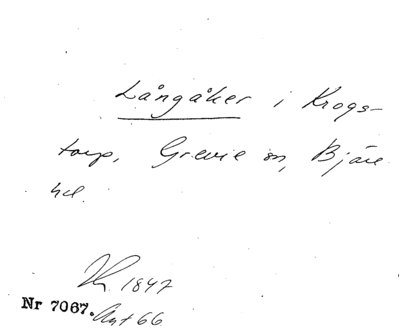 Långåker i Krogs-
torp, Grevie sn, Bjäre
hd.
1847
Nr 7067. Akt 66